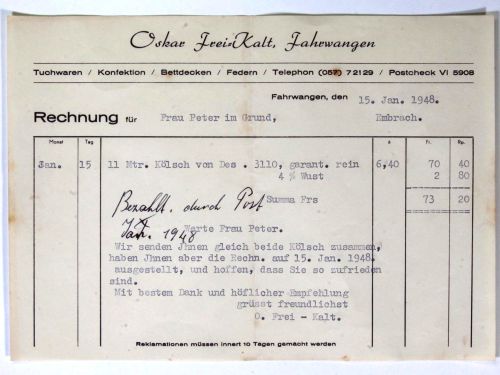 Oskar Frei-Kalt, Fahrwangen
Tuchwaren / Konfektion / Bettdecken / Federn / Telephon (057) 72129 / Postcheck VI 5908
Fahrwangen, den 15. Jan. 1948.
Rechnung für Frau Peter im Grund, Embrach.
Monat Tag à Fr. Rp.
Jan. 15 11 Mtr. Kölsch von Des . 3110, garant. rein 6,40 70 40
4 % Wust 2 80
Summa Frs 73 20
Bezahlt. durch Post
Jan. 1948
Werte Frau Peter.
Wir senden Jhnen gleich beide Kölsch zusammen,
haben Jhnen aber die Rechn. auf 15. Jan. 1948.
ausgestellt, und hoffen, dass Sie so zufrieden
sind.
Mit bestem Dank und höflicher Empfehlung
grüsst freundlichst
O. Frei - Kalt.
Reklamationen müssen innert 10 Tagen gemacht werden